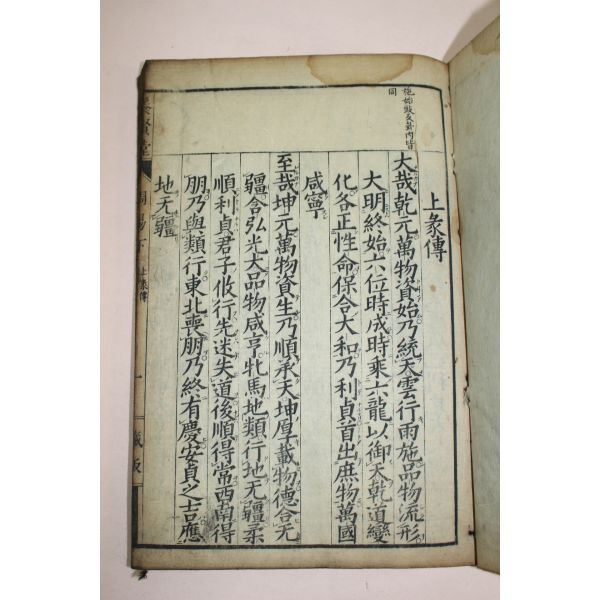 施始啟爻並内皆
同
上彖傳
大哉乾元萬物資始乃統天雲行雨施品物流形
大明終始六位時成時乘六龍以御天乾道變
化各正性命保合大和乃利貞首出庶物萬國
咸寧
至哉坤元萬物資生乃順承天坤厚載物德合无
疆含弘光大品物咸亨牝馬地類行地无疆柔
順利貞君子攸行先迷失道後順得常西南得
朋乃與類行東北喪朋乃終有慶安貞之吉應
地无疆
周易下 上彖傳 一 藏板